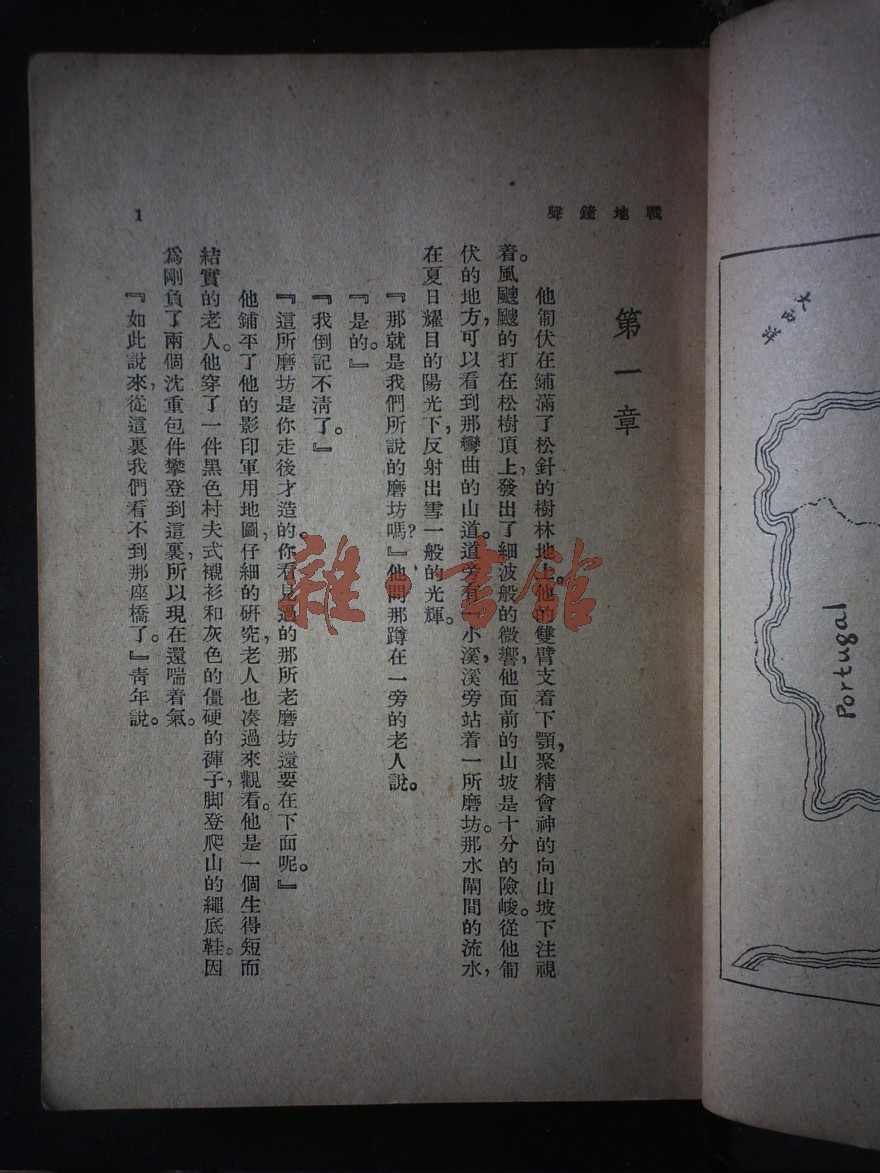 戰地鐘聲
第一章
他匍伏在鋪滿了松針的樹林地上。他的雙臂支着下顎，聚精會神的向山坡下注視
着。風颼颼的打在松樹頂上，發出了細波般的微響，他面前的山坡是十分的險峻。從他匍
伏的地方，可以看到那彎曲的山道。道旁有一小溪，溪旁站着一所磨坊。那水閘間的流水，
在夏日耀目的陽光下，反射出雪一般的光輝。
『那就是我們所說的磨坊嗎？』他問那蹲在一旁的老人說。
『是的。』
『我倒記不淸了。』
『這所磨坊是你走後才造的。你看見過的那所老磨坊還要在下面呢。』
他鋪平了他的影印軍用地圖，仔細的研究，老人也凑過來觀看。他是一個生得短而
結實的老人。他穿了一件黑色村夫式襯衫和灰色的僵硬的褲子，脚登爬山的繩底鞋。因
爲剛負了兩個沈重包件攀登到這裏，所以現在還喘着氣。
『如此說來，從這裏我們看不到那座橋了。』靑年說。
1
大西洋
Portugal
雜·書館